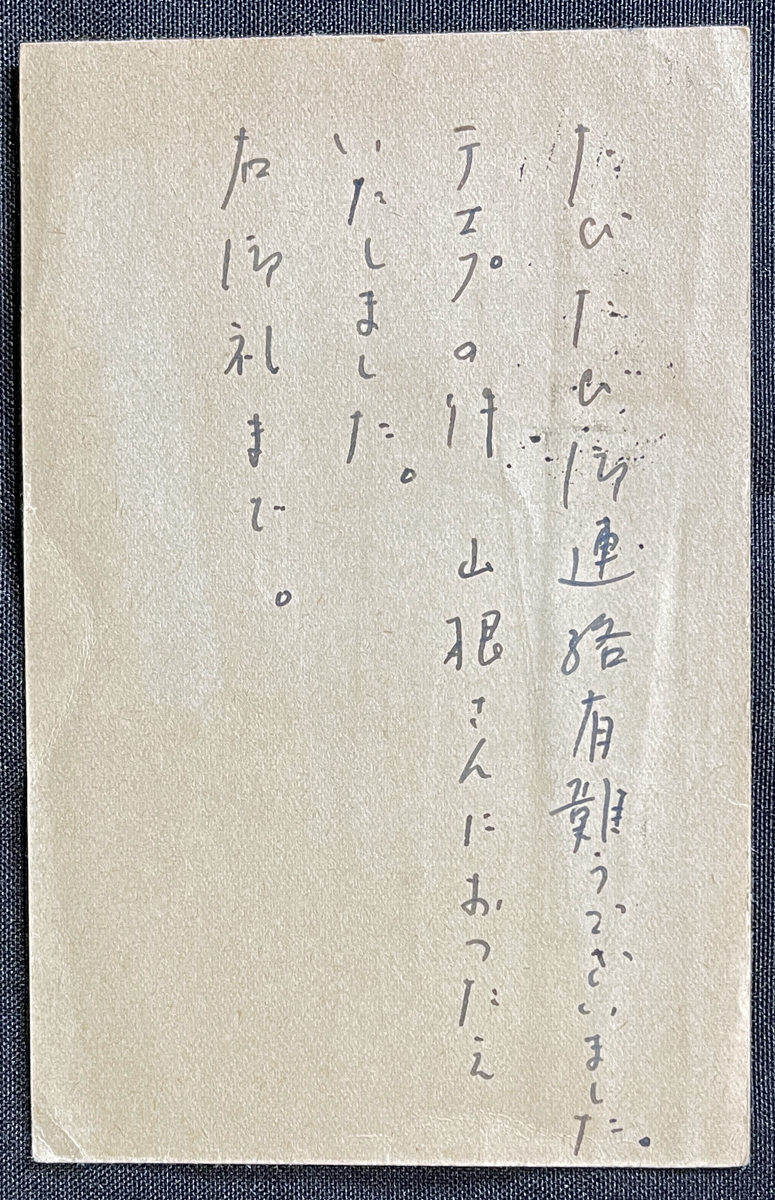 たびたび御連絡有難うございました。
テエプの件 山根さんにおつたえ
いたしました。
右御礼まで。